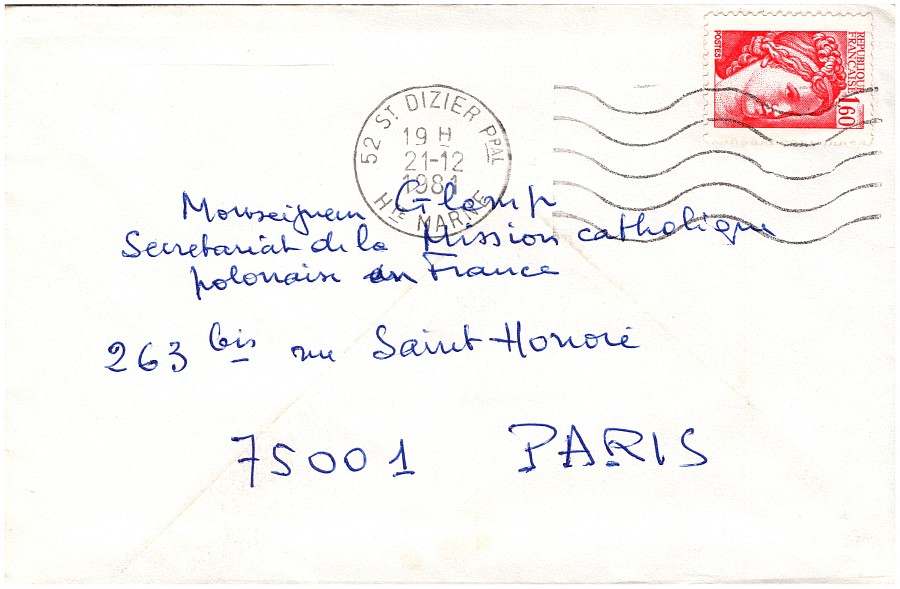 POSTES
REPUBLIQUE
FRANCAISE
1,60
52 ST DIZIER PPAL
19 H
21-12
1981
HTE MARNE
Monseigneur Glemp
Secretariat de la Mission catholique
polonaise en France
263 bis rue Saint-Honoré
75001 PARIS